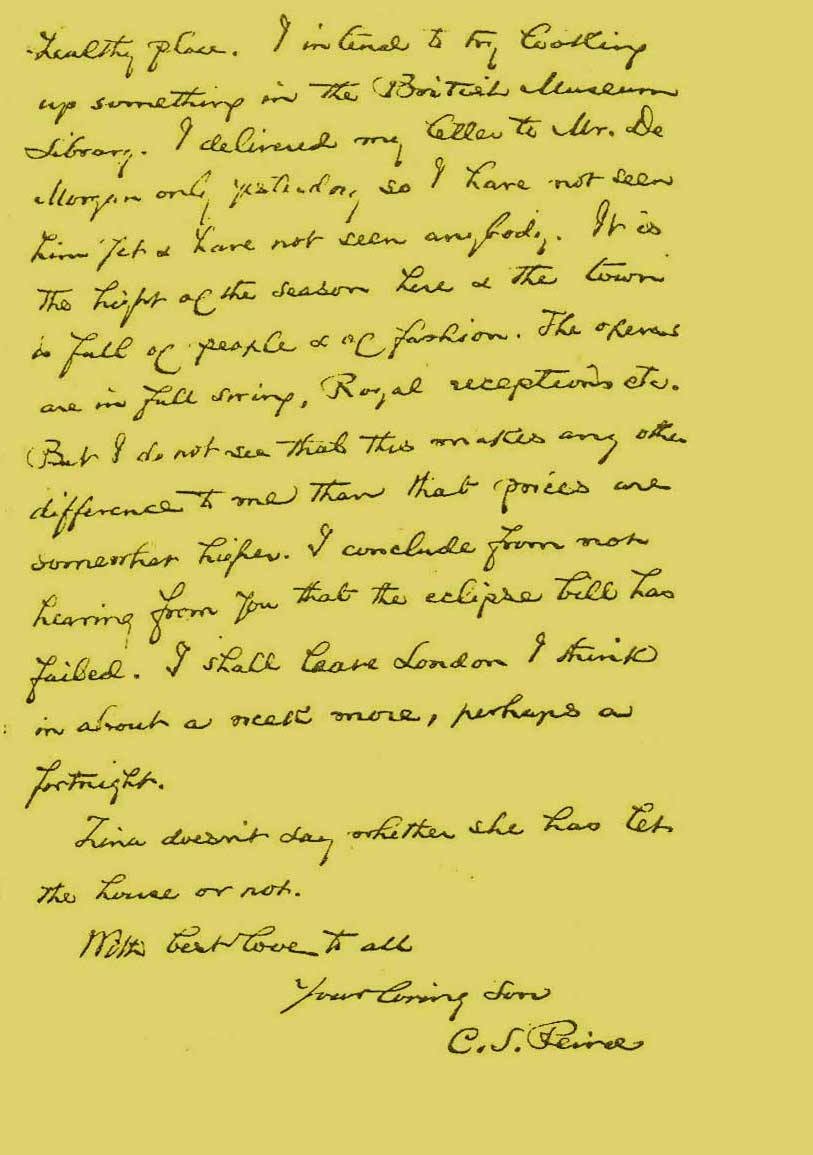 healthy place. I intend to try looking
up something in the British Museum
Library. I delivered my letter to Mr. De
Morgan only yesterday so I have not seen
him yet & have not seen anybody. It is
the hight of the season here & the town
is full of people & of fashion. The operas
are in full swing, Royal receptions etc.
But I do not see that this makes any other
difference to me than that prices are
somewhat higher. I conclude from not
hearing from you that the eclipse bill has
failed. I shall leave London I think
in about a week more, perhaps a
fortnight.
Zina doesn't say whether she has let
the house or not.
With best love to all
Your loving Son
C. S. Peirce